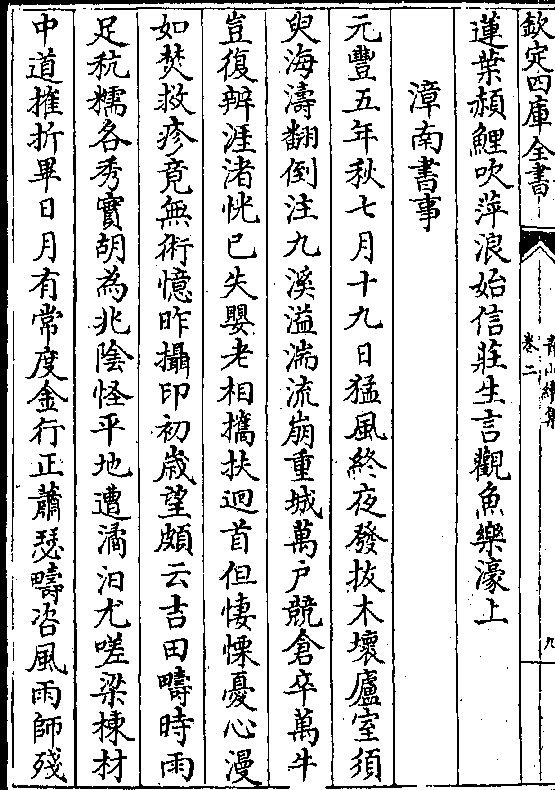 欽定四庫全書
青山續集
卷二
九
蓮葉頳鯉吹萍浪始信莊生言觀魚樂濠上
漳南書事
元豐五年秋七月十九日猛風終夜發拔木壞廬室須
臾海濤翻倒注九溪溢湍流崩重城萬户競倉卒萬牛
豈復辨涯渚恍已失嬰老相攜扶迴首但悽慄憂心漫
如焚救疹竟無術憶昨攝印初歲望頗云吉田疇時雨
足秔糯各秀實胡為兆陰怪平地遭潏汩尤嗟梁棟材
中道摧折畢日月有常度金行正蕭瑟疇咨風雨師殘